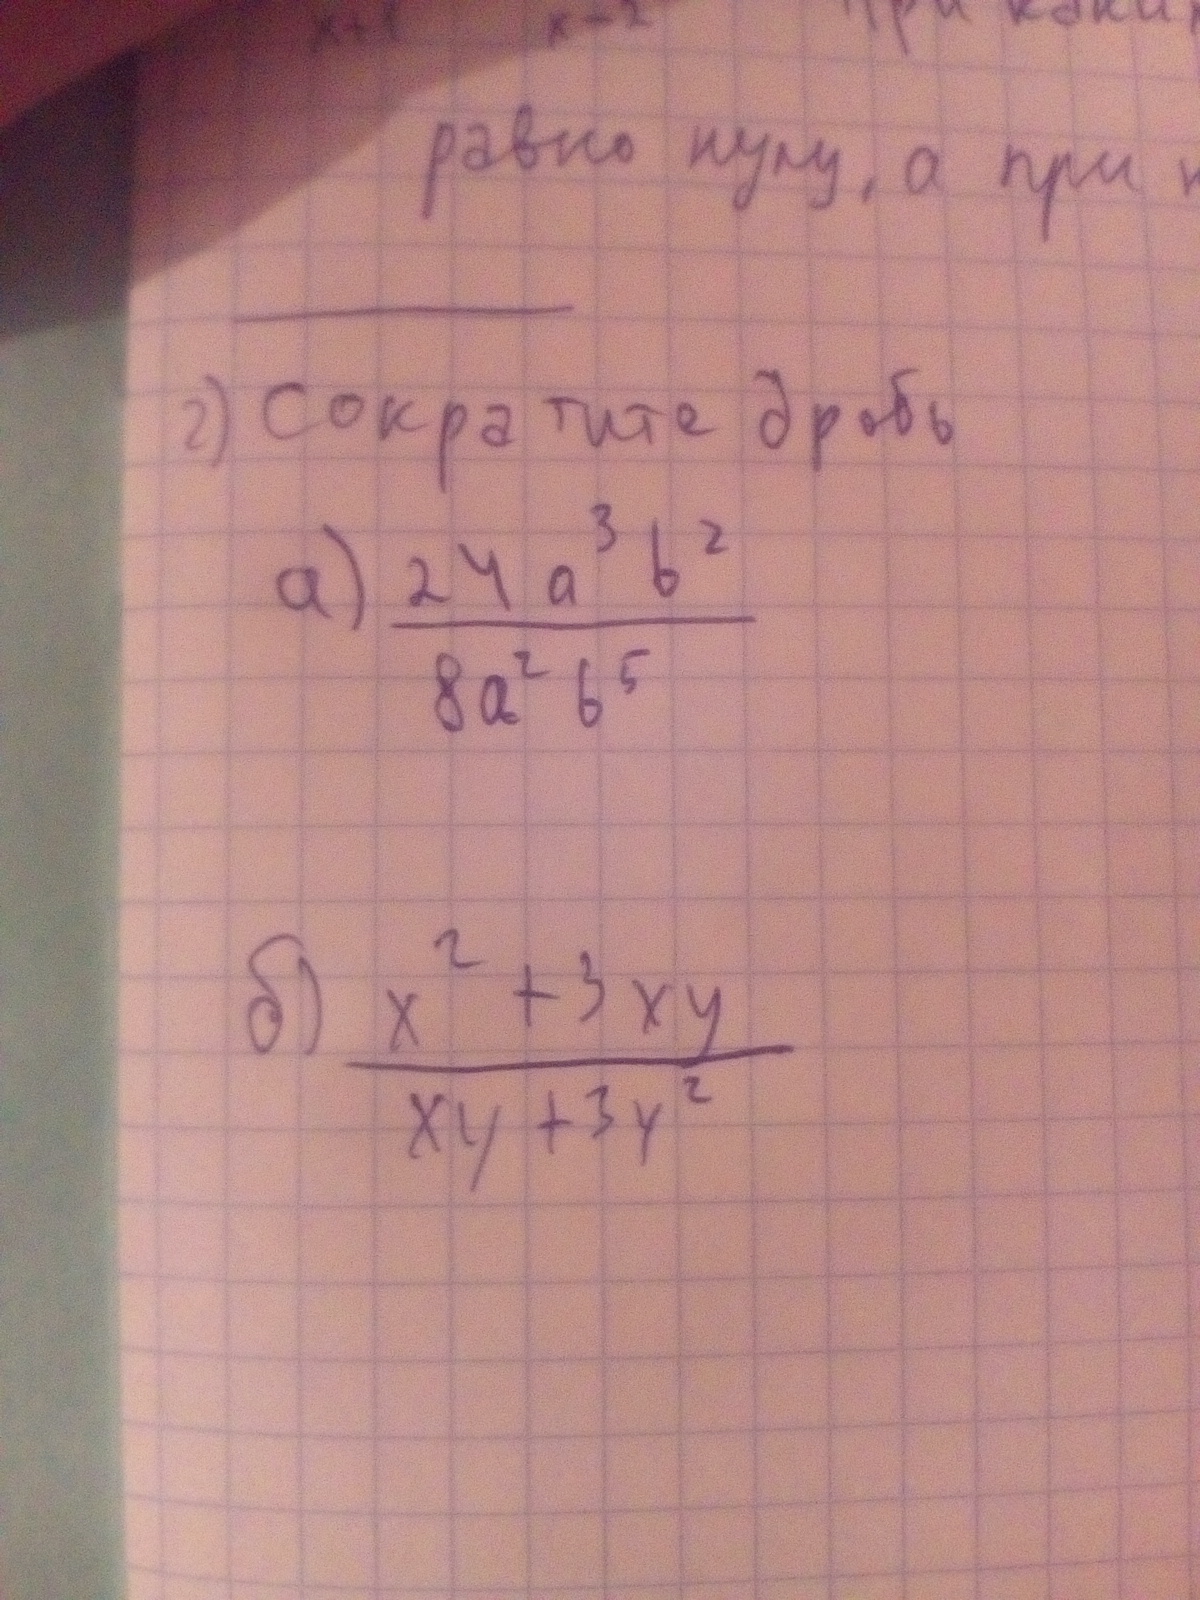 x+1 x-2 При каких
равно нулю, а при
2) Сократите дробь
а) 24a³b²
8a²b⁵
б) x²+3xy
xy+3y²